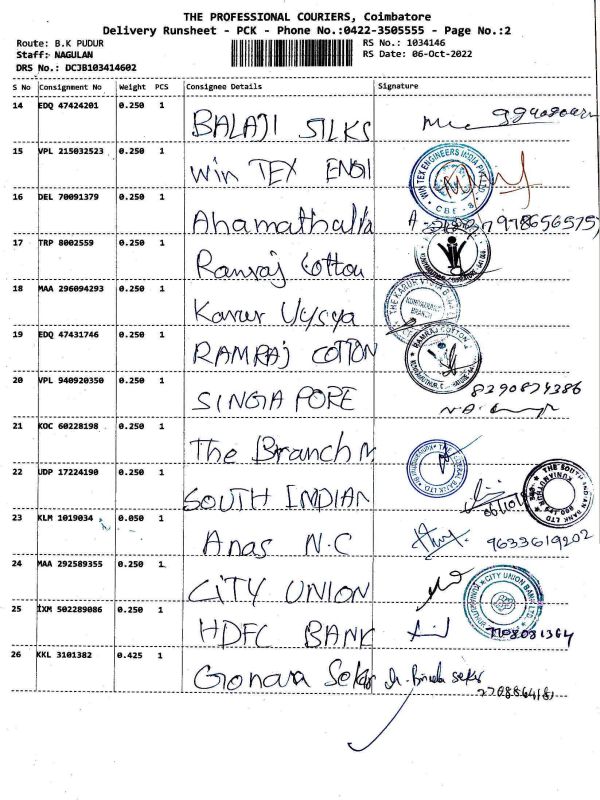 THE PROFESSIONAL COURIERS, Coimbatore
Delivery Runsheet - PCK - Phone No.:0422-3505555 - Page No.:2
Route: B.K PUDUR RS No.: 1034146
Staff: NAGULAN RS Date: 06-Oct-2022
DRS No.: DCJB103414602
S No Consignment No Weight PCS Consignee Details Signature
14 EDQ 47424201 0.250 1 BALAJI SILKS
15 VPL 215032523 0.250 1 Win TEX ENGI
WIN TEX ENGINEERS INDIA PVT LTD CBE - 8
16 DEL 70091379 0.250 1 Ahamathalla
17 TRP 8002559 0.250 1 Ramraj Cotton
18 MAA 296094293 0.250 1 Karur Vysya
THE KARUR VYSYA BANK BRANCH
19 EDQ 47431746 0.250 1 RAMRAJ COTTON
RAMRAJ COTTON
20 VPL 940920350 0.250 1 SINGA PORE 8290874386
21 KOC 60228198 0.250 1 The Branch M
THE FEDERAL BANK LTD.
22 UDP 17224190 0.250 1 SOUTH INDIAN
THE SOUTH INDIAN BANK LTD
23 KLM 1019034 0.050 1 Anas N.C 9633619202
24 MAA 292589355 0.250 1 CITY UNION
CITY UNION BANK LTD.
25 IXM 502289086 0.250 1 HDFC BANK
26 KKL 3101382 0.425 1 Gonara Sekar